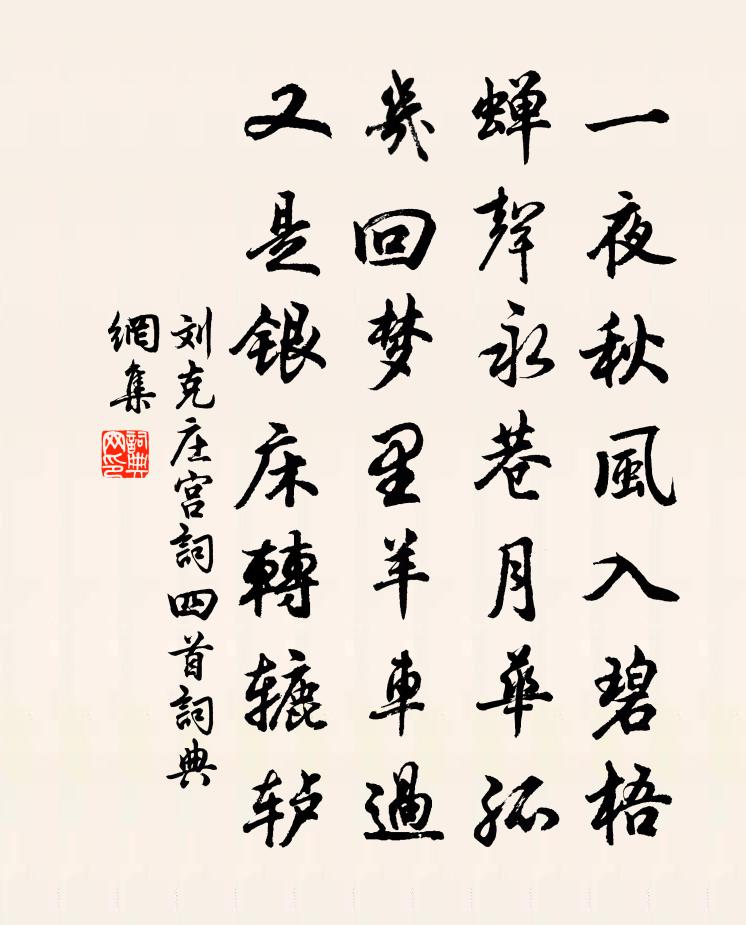 一夜秋風入碧梧
蝉聲永巷月華孤
幾回梦里羊車過
又是银床轉辘轳
刘克庄宫詞四首詞典
網集
詞典網印